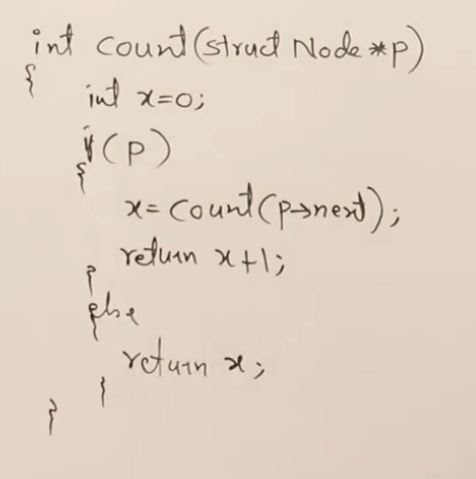 int count(struct Node *p)
{
int x=0;
if(p)
{
x=count(p→next);
return x+1;
}
else
{
return x;
}
}